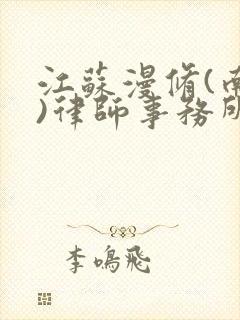 江蘇漫脩(南
)律師事務所
李鳴飛